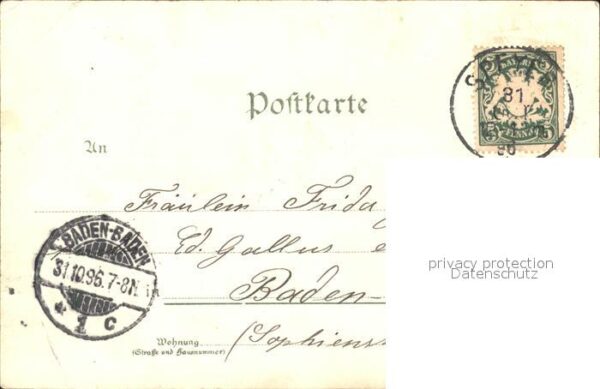 Postkarte
An
Fräulein Frida
Ed. Gallus
Baden-
(Sophienst
Wohnung
(Straße und Hausnummer)
SPEYER
31
96
BAYERN
5 PFENNIG 5
BADEN-BADEN
31.10.96.7-8N.
* 1 c
privacy protection
Datenschutz